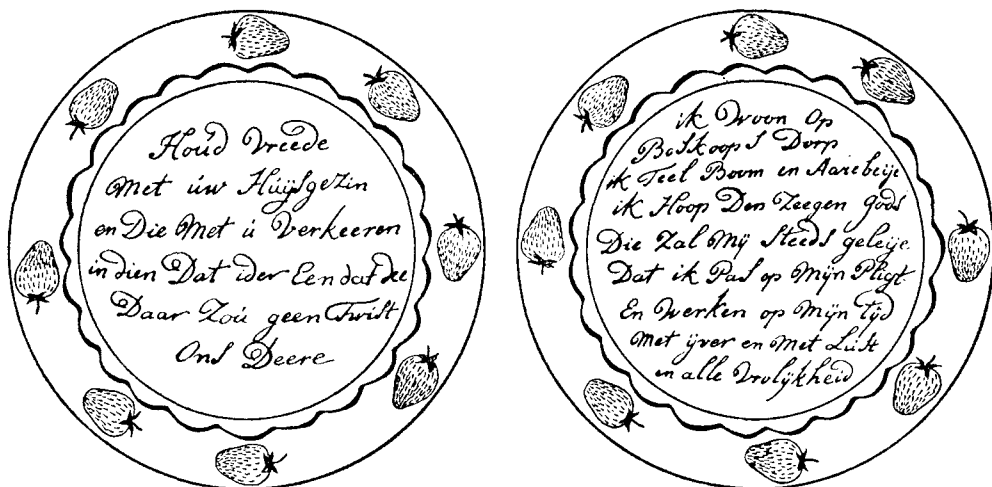 Houd Vreede
Met úw Húÿsgezin
en Die Met ú Verkeeren
in dien Dat ider Een dat dee
Daar Zoú geen Twist
Ons Deere
ik Woon Op
Boskoops Dorp
ik Teel Boom en Aarebeije
ik Hoop Den Zeegen gods
Die Zal Mÿ steeds geleije
Dat ik Pas op Mÿn Pligt
En Werken op Mÿn tÿd
Met ÿver en Met Lúst
en alle Vrolÿkheid